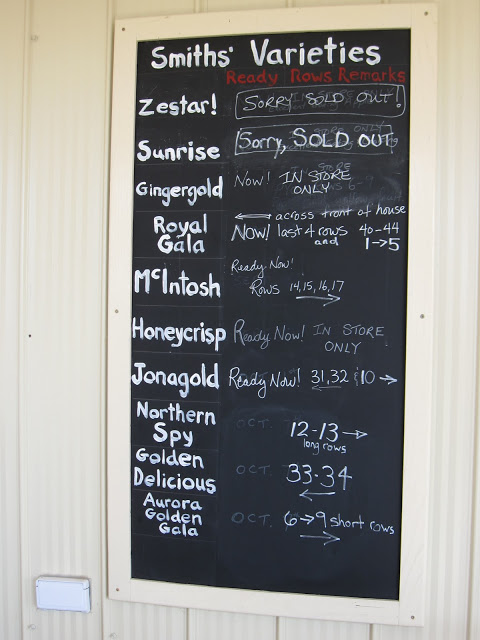 Smiths' Varieties
Ready Rows Remarks
Zestar! SORRY SOLD OUT!
Sunrise Sorry, SOLD OUT
Gingergold Now! IN STORE
ONLY
← across front of house
Royal
Gala Now! last 4 rows 40-44
and 1→5
McIntosh Ready Now!
Rows 14, 15, 16, 17
→
Honeycrisp Ready Now! IN STORE
ONLY
Jonagold Ready Now! 31, 32 10 →
←
Northern
Spy OCT. 12-13 →
long rows
Golden
Delicious OCT. 33-34
←
Aurora
Golden
Gala OCT. 6→9 short rows
→